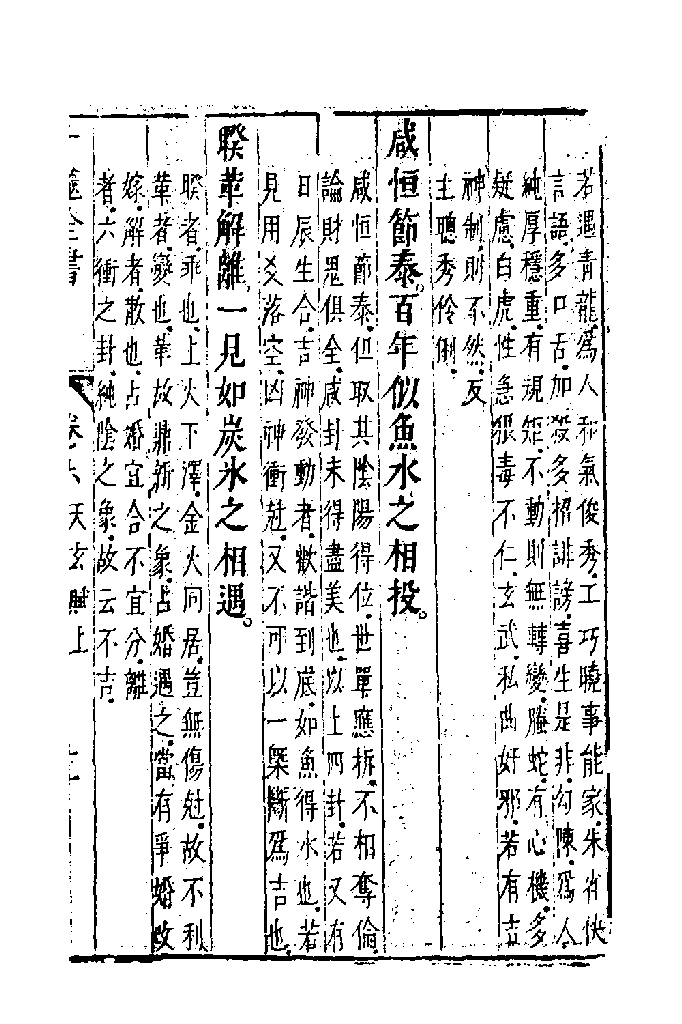 若遇青龍爲人和氣俊秀工巧曉事能家朱雀快
言語多口舌加殺多招誹謗喜生是非勾陳爲人
純厚穩重有規矩不動則無轉變螣蛇有心機多
疑慮白虎性急狠毒不仁玄武私曲奸邪若有吉
神制則不然反
主聰秀伶俐
咸恒節泰百年似魚水之相投
咸恒節泰但取其陰陽得位世單應拆不相奪倫
論財鬼俱全咸卦未得盡美也以上四卦若又有
日辰生合吉神發動者歡諧到底如魚得水也若
見用爻落空凶神衝尅又不可以一槩斷爲吉也
睽革解離一見如炭氷之相遇
睽者乖也上火下澤金火同居豈無傷尅故不利
革者變也革故鼎新之象占婚遇之當有爭婚改
嫁解者散也占婚宜合不宜分離
者六衝之卦純陰之象故云不吉
卜筮全書 卷六天玄賦上